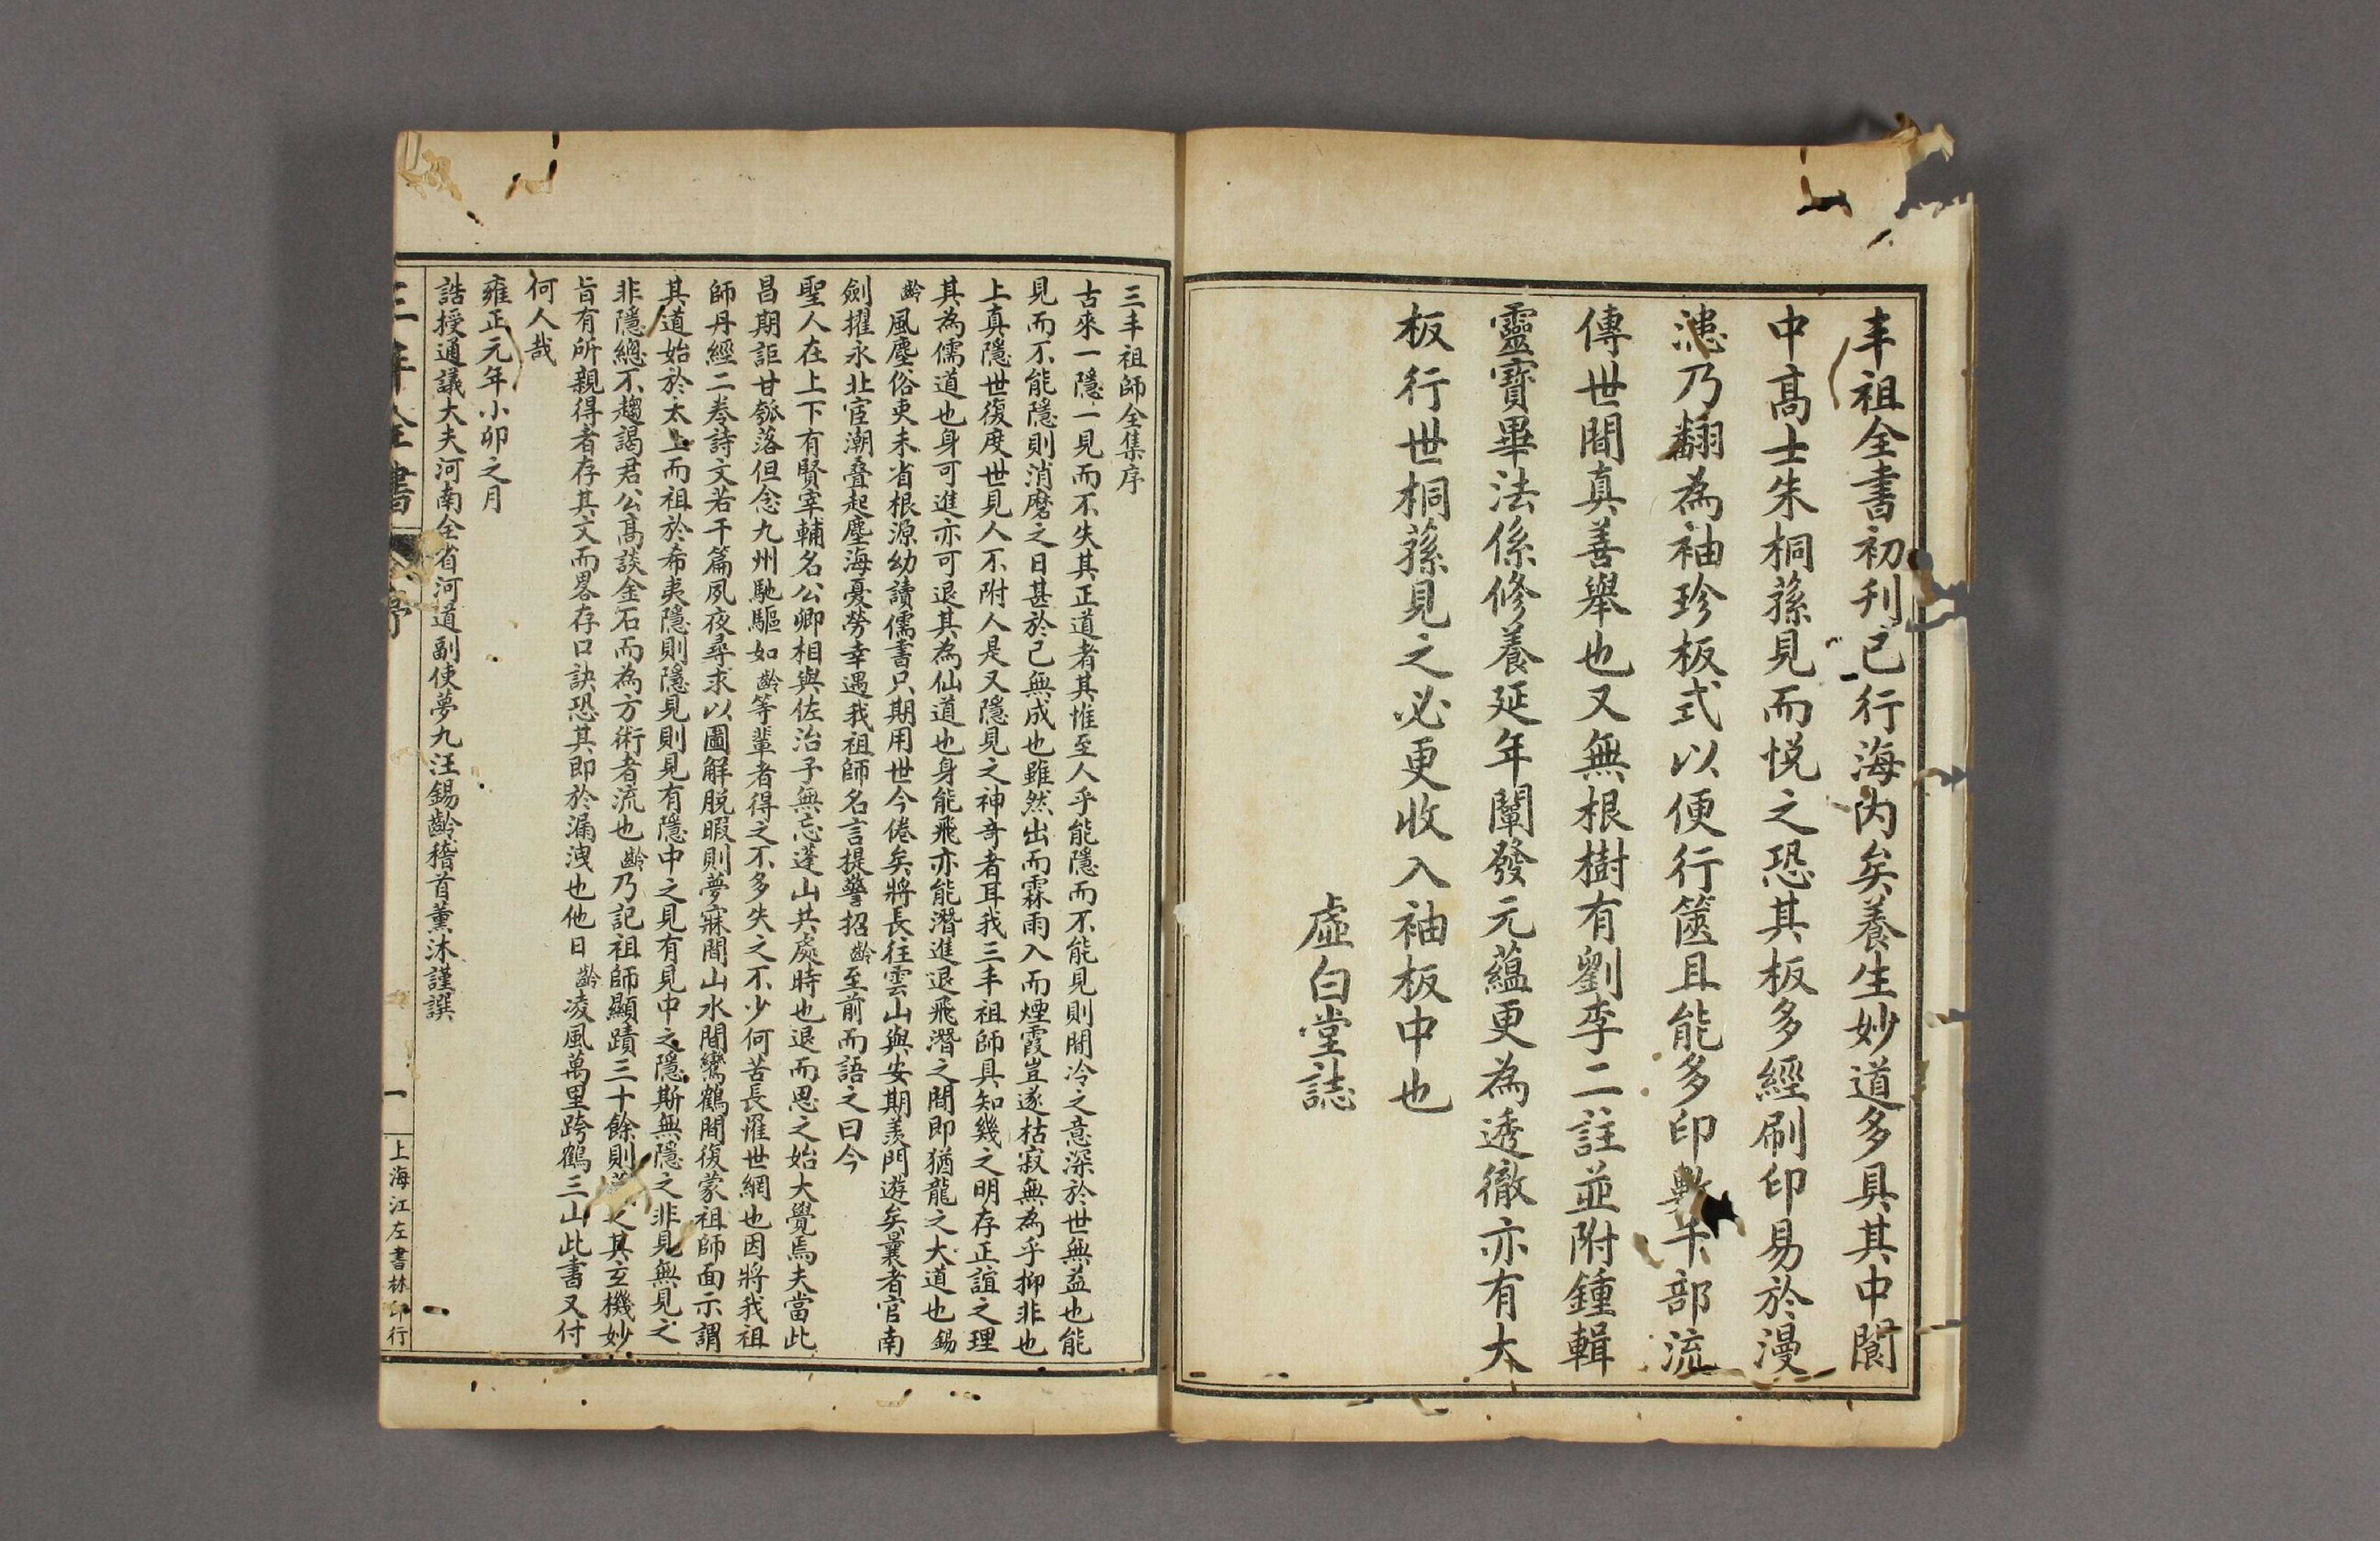 丰祖全書初刋已行海内矣養生妙道多具其中閬
中髙士朱桐蓀見而悦之恐其板多經刷印易於漫
漶乃翻為袖珍板式以便行篋且能多印數千部流
傳世間真善舉也又無根樹有劉李二註並附鍾輯
靈寳畢法係修養延年闡發元蘊更為透徹亦有大
板行世桐蓀見之必更收入袖板中也
虛白堂誌
三丰祖師全集序
古來一隱一見而不失其正道者其惟至人乎能隱而不能見則閒冷之意深於世無益也能
見而不能隱則消磨之日甚於己無成也雖然出而霖雨入而煙霞豈遂枯寂無為乎抑非也
上真隱世復度世見人不附人是又隱見之神奇者耳我三丰祖師具知幾之明存正誼之理
其為儒道也身可進亦可退其為仙道也身能飛亦能潛進退飛潛之間即猶龍之大道也錫
齡風塵俗吏未省根源幼讀儒書只期用世今倦矣將長往雲山與安期羨門遊矣曩者官南
劍擢永北宦潮疊起塵海憂勞幸遇我祖師名言提警招齡至前而語之曰今
聖人在上下有賢宰輔名公卿相與佐治子無忘蓬山共處時也退而思之始大覺焉夫當此
昌期詎甘瓠落但念九州馳驅如齡等輩者得之不多失之不少何苦長罹世網也因將我祖
師丹經二卷詩文若干篇夙夜尋求以圖解脱暇則夢寐間山水間鸞鶴間復蒙祖師面示謂
其道始於太上而祖於希夷隱則隱見則見有隱中之見有見中之隱斯無隱之非見無見之
非隱總不趨謁君公髙談金石而為方術者流也齡乃記祖師顯蹟三十餘則之其玄機妙
旨有所親得者存其文而畧存口訣恐其即於漏洩也他日齡凌風萬里跨鶴三山此書又付
何人哉
雍正元年小卯之月
誥授通議大夫河南全省河道副使夢九汪錫齡稽首薰沐謹譔
三丰全書
序
一
上海江左書林印行